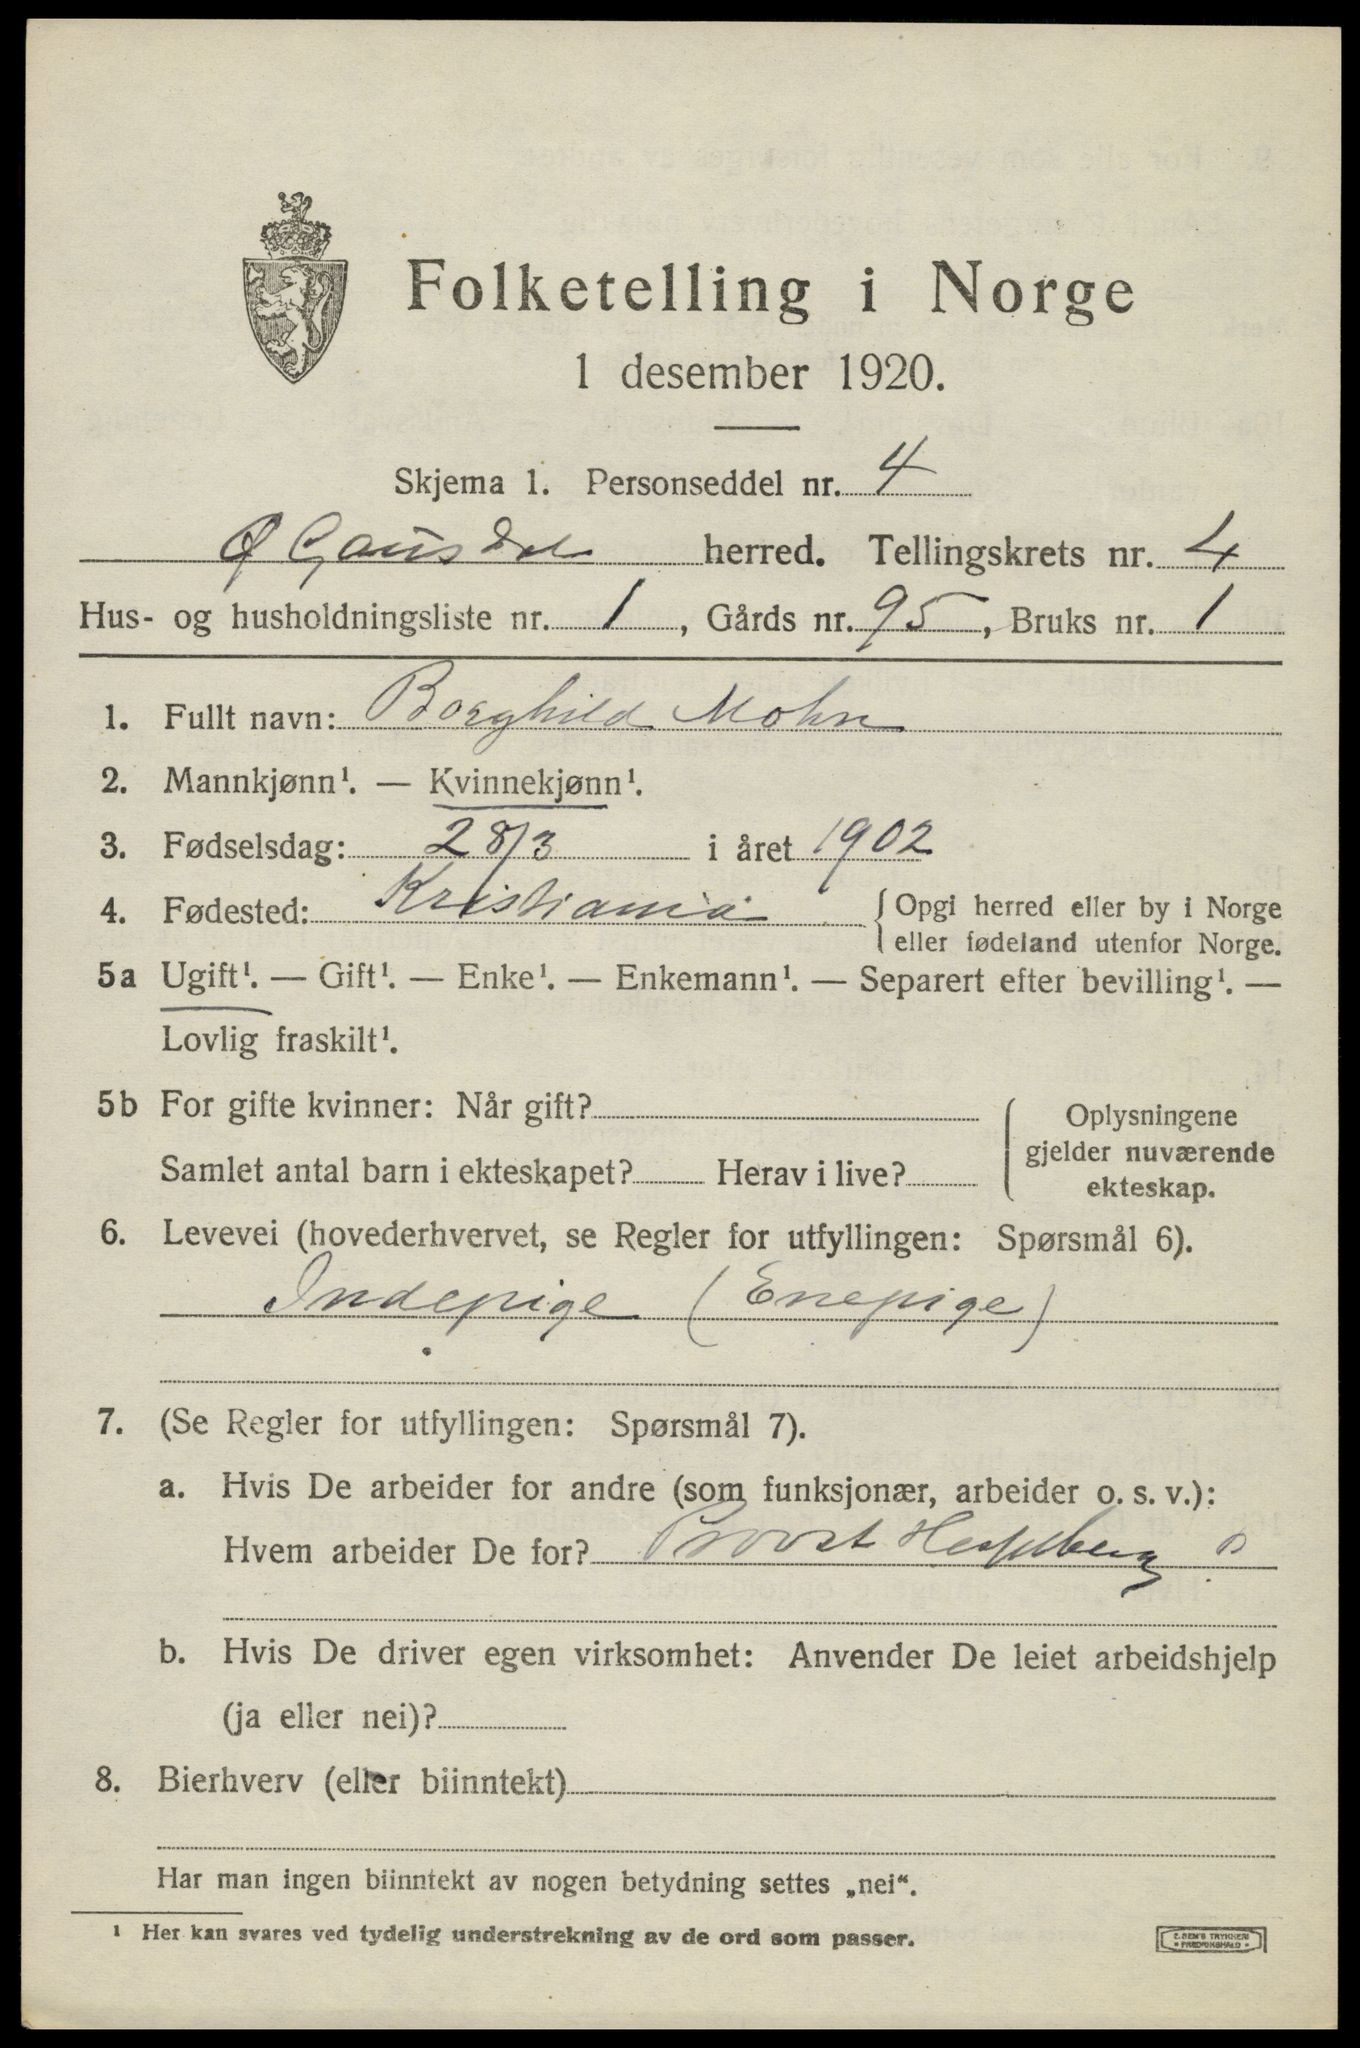 Folketelling i Norge
1 desember 1920.
Skjema 1. Personseddel nr. 4
Ø Gausdal herred. Tellingskrets nr. 4
Hus- og husholdningsliste nr. 1, Gårds nr. 95, Bruks nr. 1
1. Fullt navn: Borghild Mohn
2. Mannkjønn¹. — Kvinnekjønn¹.
3. Fødselsdag: 28/3 i året 1902
4. Fødested: Kristiania {Opgi herred eller by i Norge
eller fødeland utenfor Norge.
5a Ugift¹. — Gift¹. — Enke¹. — Enkemann¹. — Separert efter bevilling¹. —
Lovlig fraskilt¹.
5b For gifte kvinner: Når gift?
Samlet antal barn i ekteskapet? Herav i live?
Oplysningene
gjelder nuværende
ekteskap.
6. Levevei (hovederhvervet, se Regler for utfyllingen: Spørsmål 6).
Indepige (Enepige)
7. (Se Regler for utfyllingen: Spørsmål 7).
a. Hvis De arbeider for andre (som funksjonær, arbeider o. s. v.):
Hvem arbeider De for? Provst
b. Hvis De driver egen virksomhet: Anvender De leiet arbeidshjelp
(ja eller nei)?
8. Bierhverv (eller biinntekt)
Har man ingen biinntekt av nogen betydning settes „nei“.
¹ Her kan svares ved tydelig understrekning av de ord som passer.
E. SEM'S TRYKKERI
FREDRIKSHALD